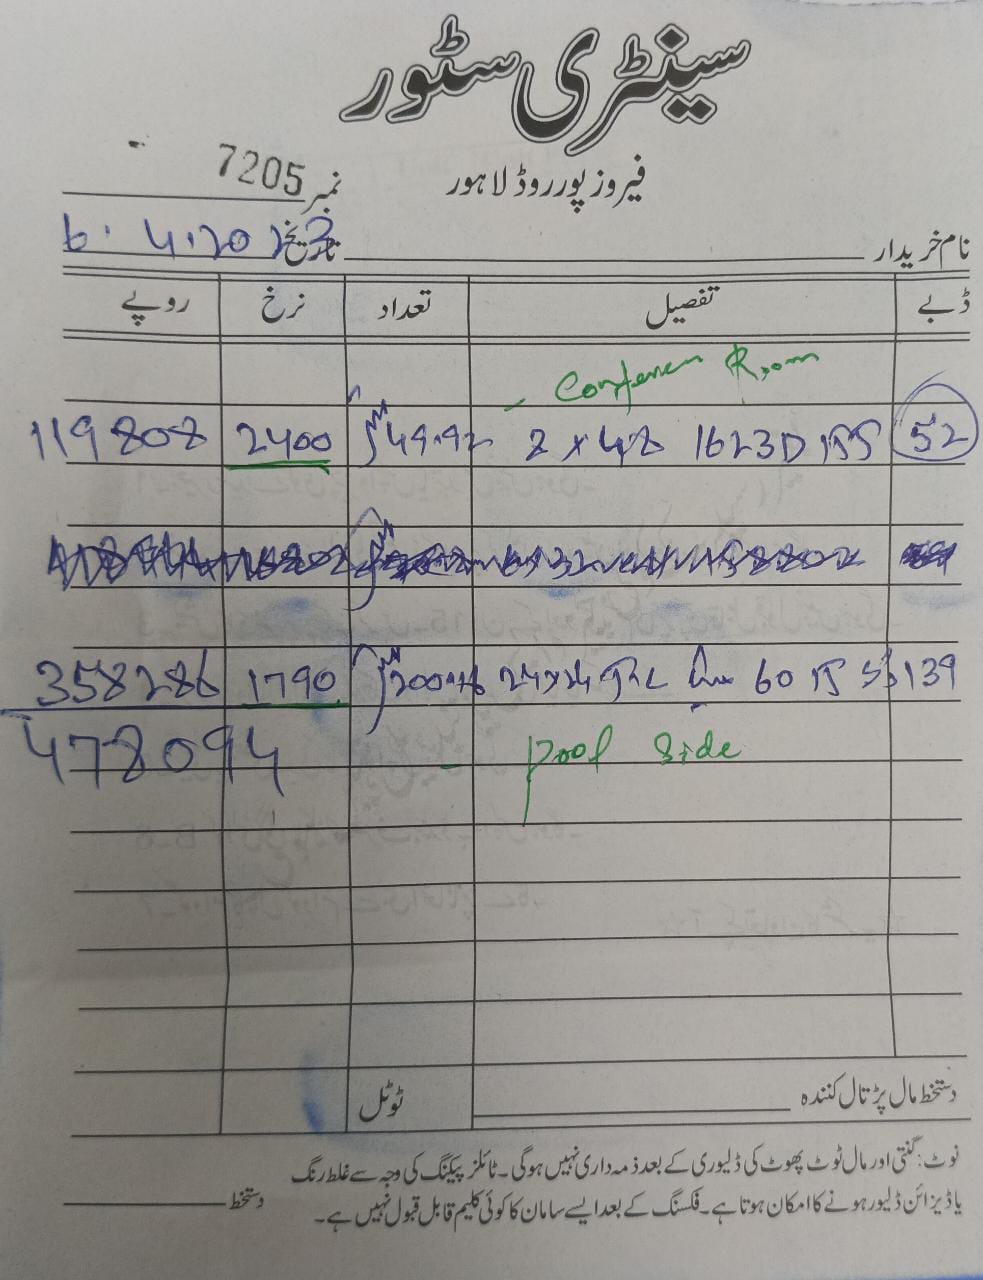 سینٹری سٹور
فیروز پور روڈ لاہور
نمبر 7205
نام خریدار
تاریخ 6.4.2023
ڈبے تفصیل تعداد نرخ روپے
Conference Room
52 2x4 1623D 49.92 2400 119808
139 24x24 60 200.16 1790 358286
478094
Pool Side
دستخط مال پڑتال کنندہ
ٹوٹل
نوٹ: گنتی اور مال ٹوٹ پھوٹ کی ڈلیوری کے بعد ذمہ داری نہیں ہوگی۔ ٹائلز پیکنگ کی وجہ سے غلط رنگ
یا ڈیزائن ڈلیور ہونے کا امکان ہوتا ہے۔ فکسنگ کے بعد ایسے سامان کا کوئی کلیم قابل قبول نہیں ہے۔
دستخط